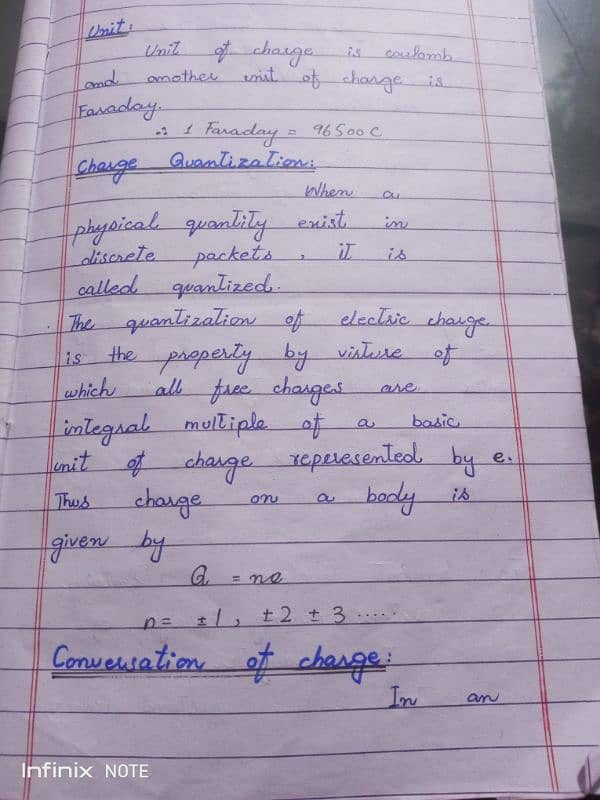 Unit:
Unit of charge is coulomb
and another unit of charge is
Faraday.
∴ 1 Faraday = 96500 C
Charge Quantization:
When a
physical quantity exist in
discrete packets, it is
called quantized.
The quantization of electric charge
is the property by virture of
which all free charges are
integral multiple of a basic
unit of charge reperesented by e.
Thus charge on a body is
given by
Q = ne
n = ±1, ±2 ±3 .....
Conversation of charge:
In an
Infinix NOTE